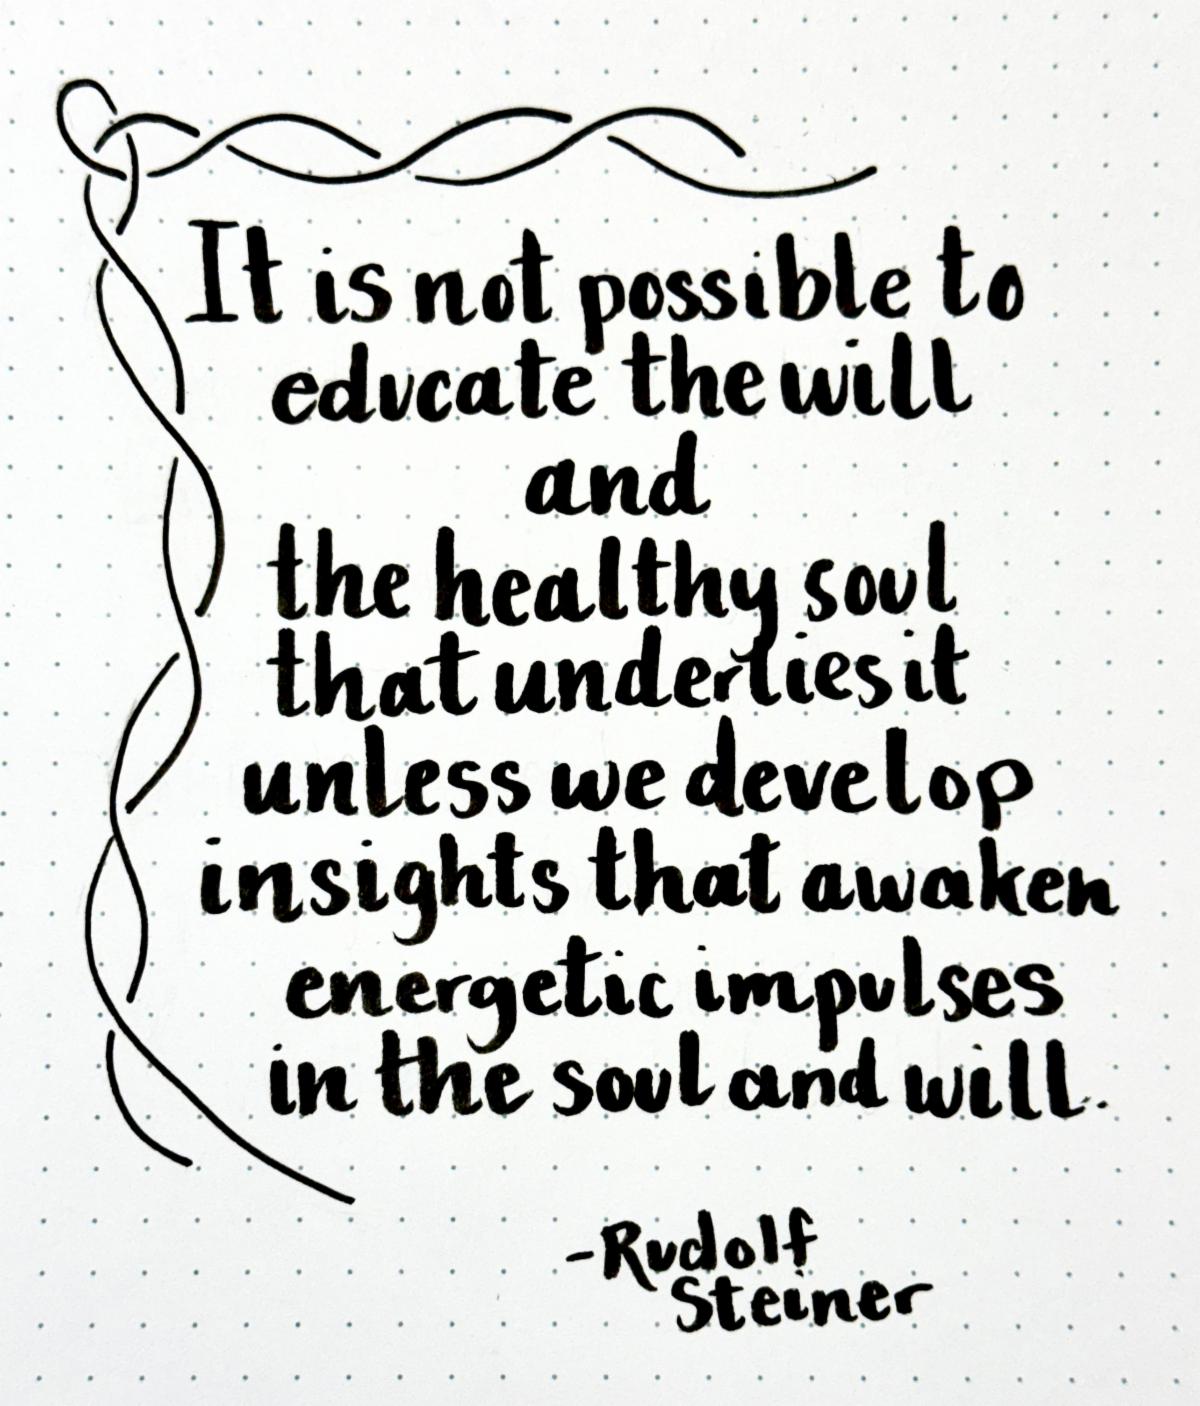 It is not possible to
educate the will
and
the healthy soul
that underlies it
unless we develop
insights that awaken
energetic impulses
in the soul and will.
-Rudolf
Steiner